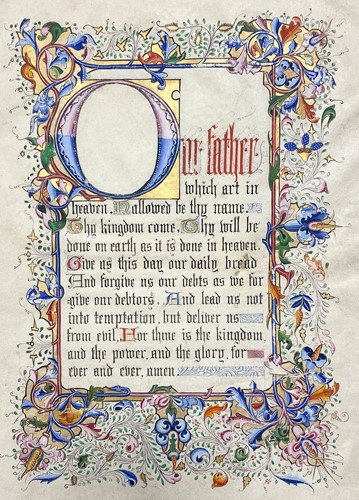 Our father
which art in
heaven. Hallowed be thy name.
Thy kingdom come. Thy will be
done on earth as it is done in heaven.
Give us this day our daily bread
And forgive us our debts as we for
give our debtors. And lead us not
into temptation, but deliver us
from evil. For thine is the kingdom,
and the power, and the glory, for
ever and ever, amen.